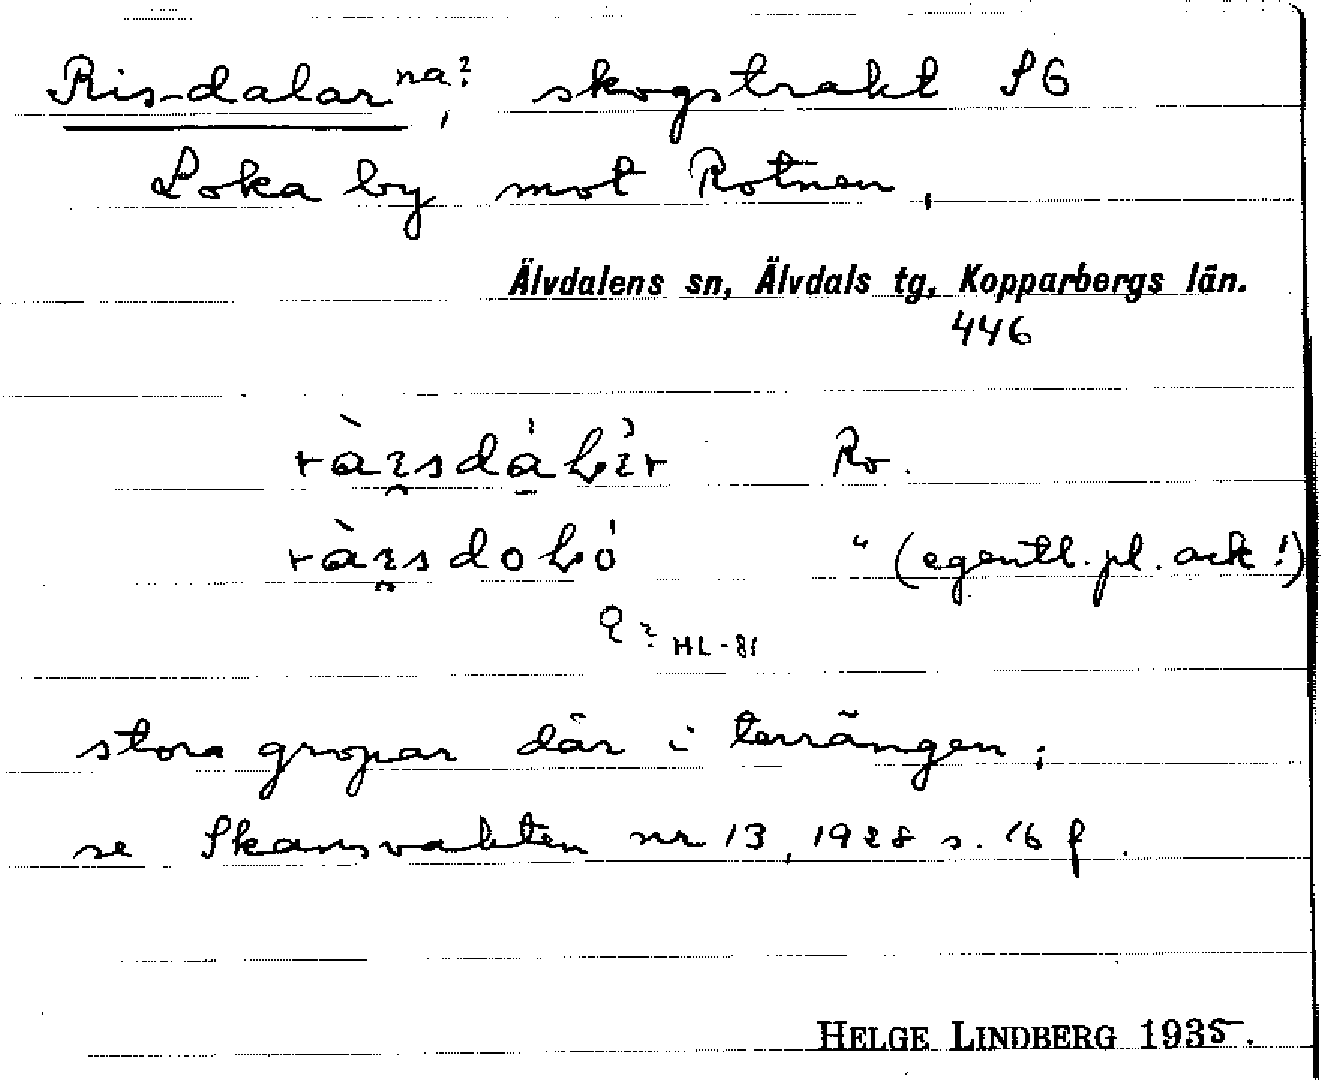 Ris-dalar na?, skogstrakt SG
Loka by mot Rotnen,
Älvdalens sn, Älvdals tg, Kopparbergs län.
446
Ro.
" (egentl. pl. ack!)
HL-81
stora gropar där i terrängen;
se Skansvakten nr 13, 1928 s. 16 f.
HELGE LINDBERG 1935.